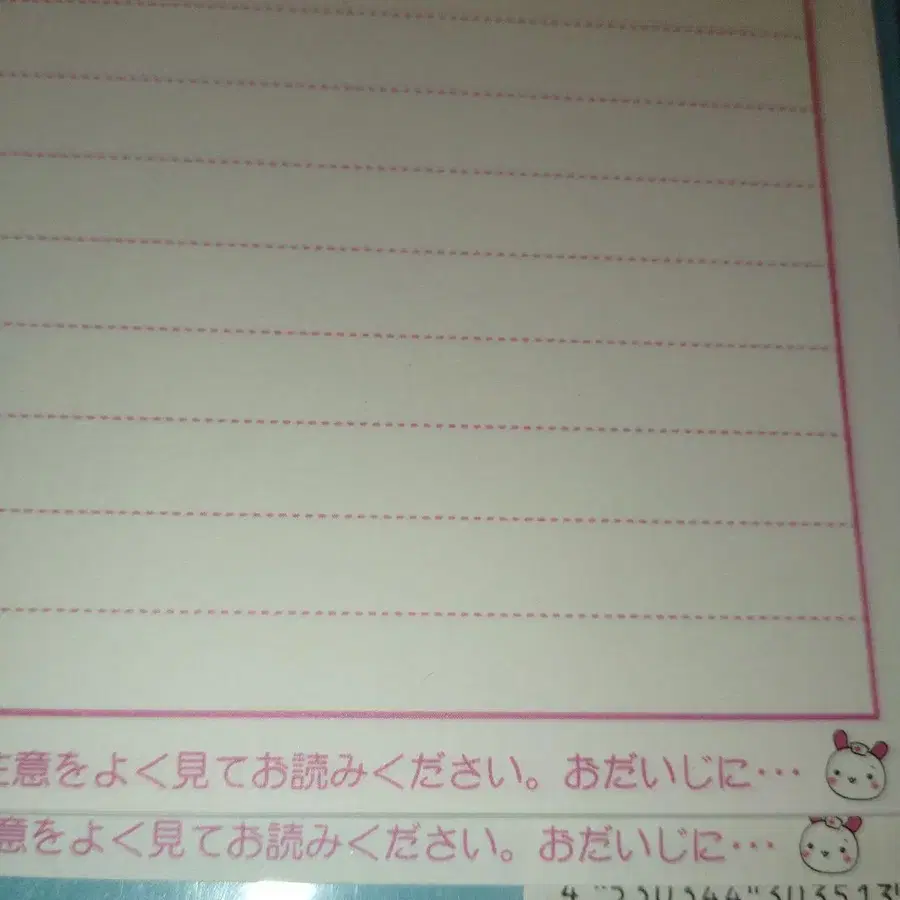 意をよく見てお読みください。おだいじに…
意をよく見てお読みください。おだいじに…